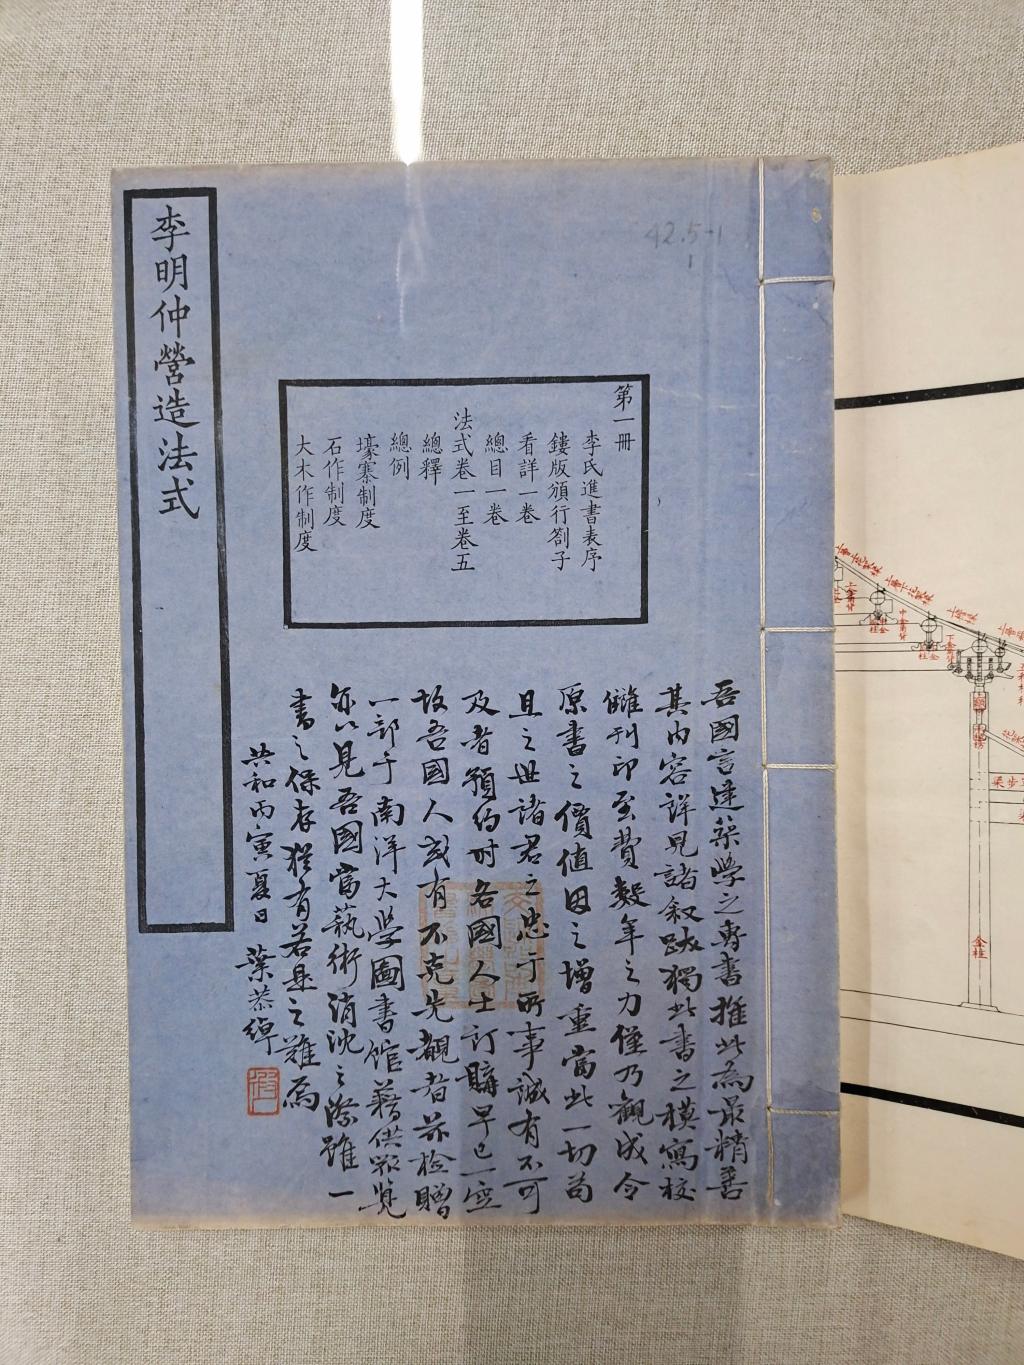 李明仲營造法式
42.5-1
1
第一冊
李氏進書表序
鏤版頒行劄子
看詳一卷
總目一卷
法式卷一至卷五
總釋
總例
壕寨制度
石作制度
大木作制度
吾國言建築學之專書推此為最精善
其內容詳見諸敘跋獨此書之模寫校
讎刊印至費數年之力僅乃觀成令
原書之價值因之增重當此一切苟
且之世諸君之忠于所事誠有不可
及者預約時各國人士訂購早已一空
故吾國人或有不克先覩者茲檢贈
一部于南洋大學圖書館藉供眾覽
亦以見吾國當藝術消沈之際雖一
書之保存猶有若是之難焉
共和丙寅夏日 葉恭綽
金柱